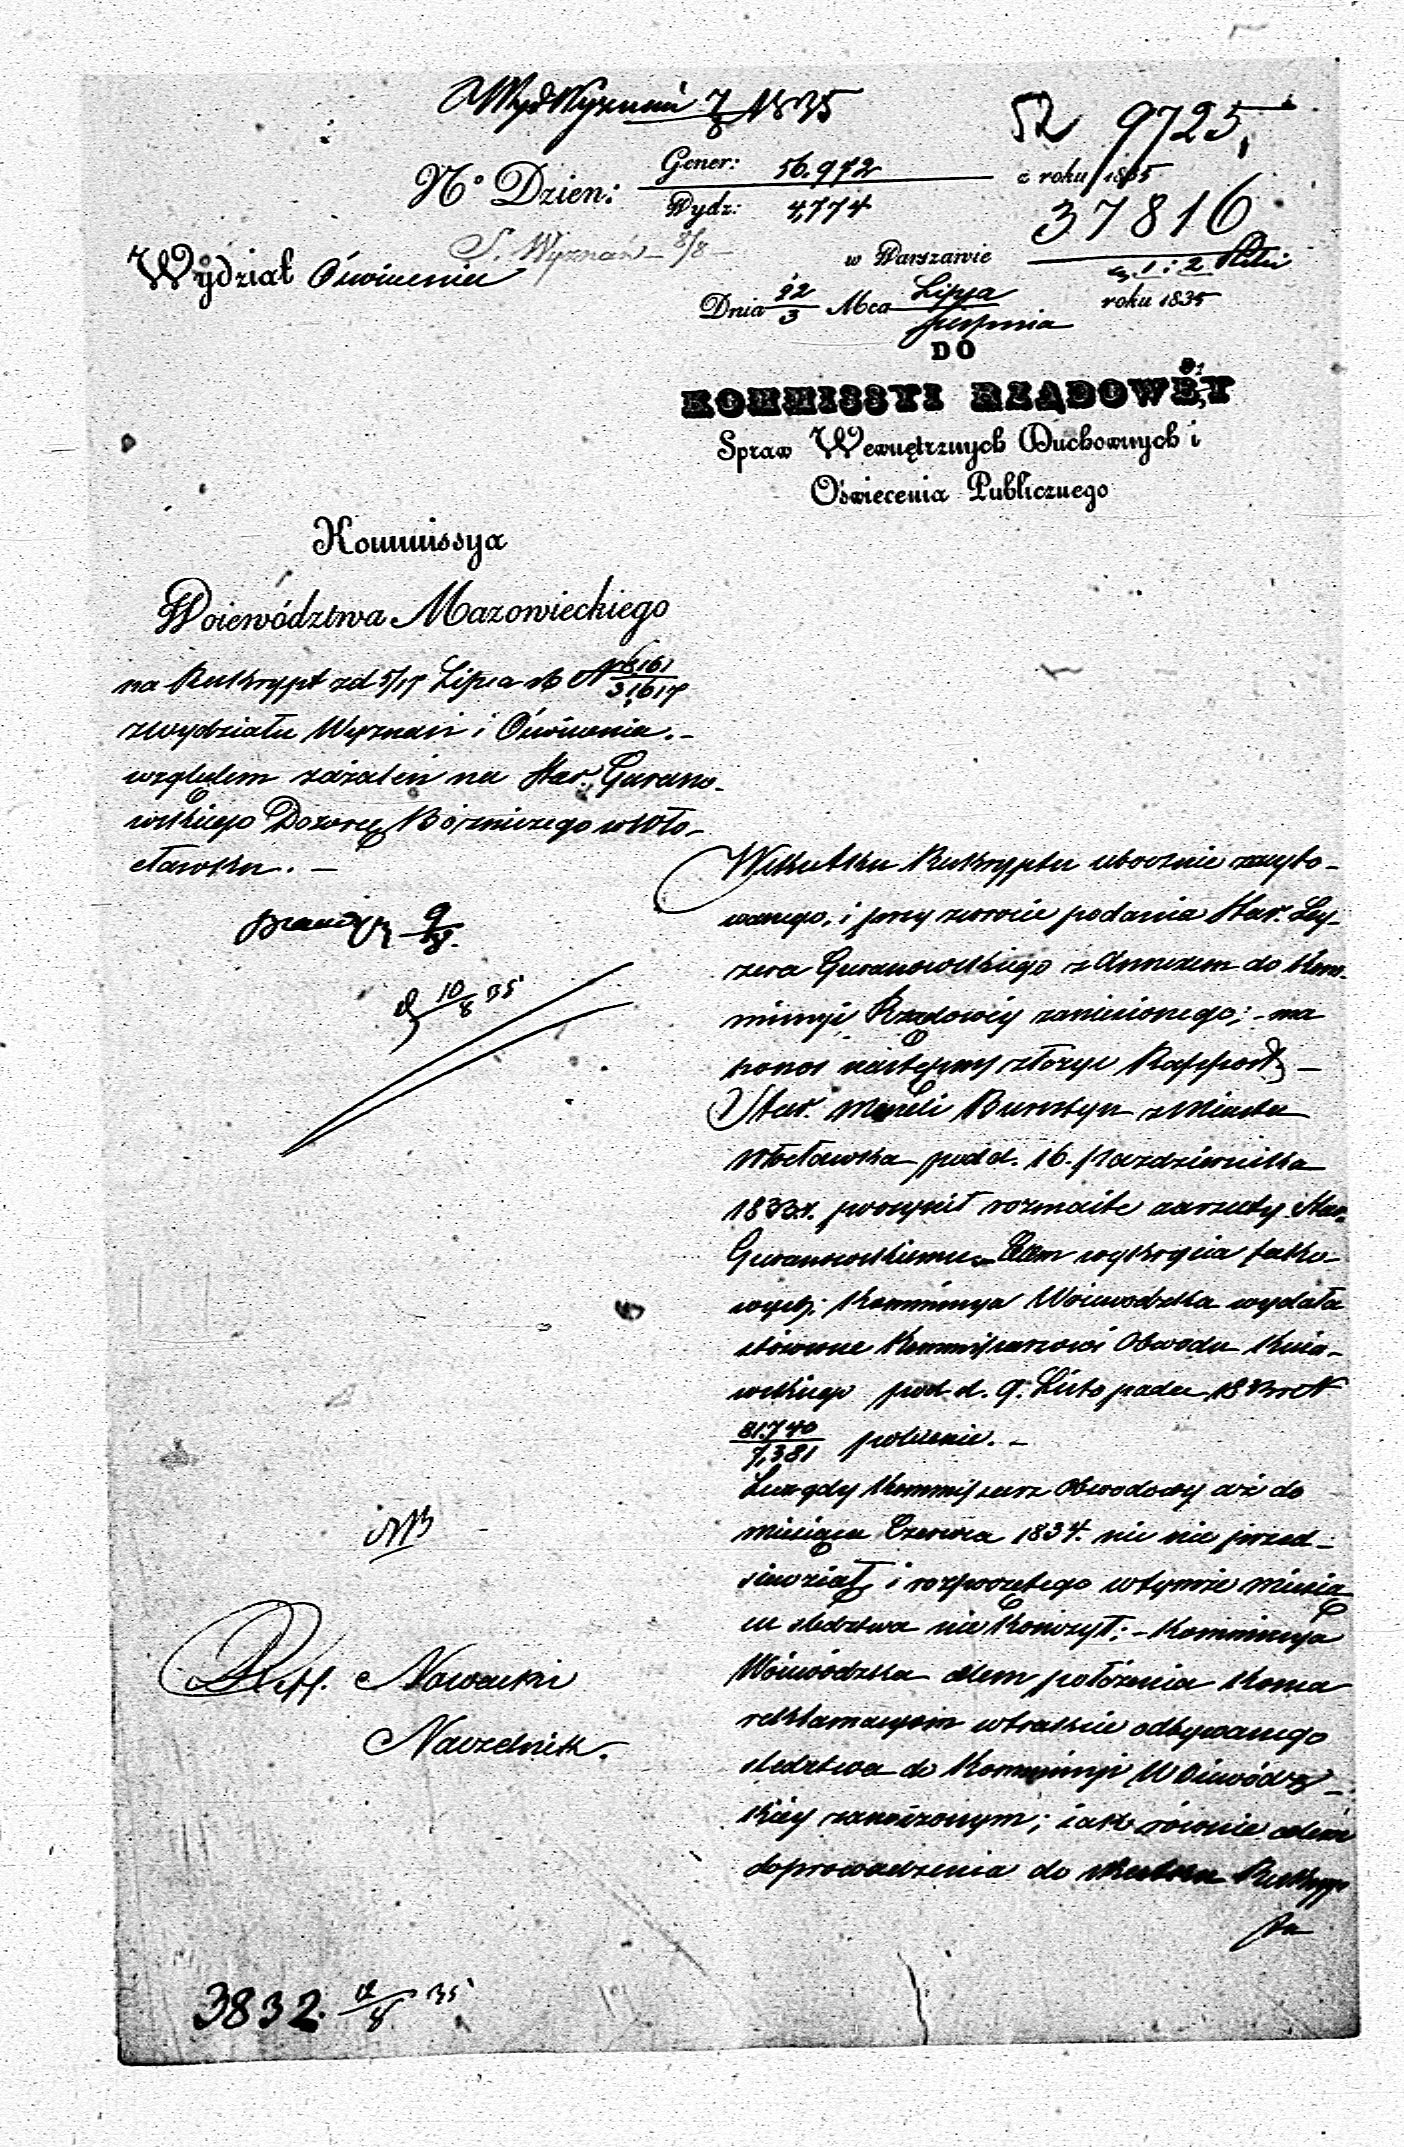 Wyd Wyznań 7/8 1835
9725
No Dzien: Gener: 56.972
Wydz: 4,774
z roku 1835
37816
S. Wyznań 8/8
Wydział Oświecenia
w Warszawie
z 1 i 2
Dnia 22/3 Mca Lipca/Sierpnia roku 1835
DO
KOMMISSYI RZĄDOWÉY
Spraw Wewnętrznych Duchownych i
Oświecenia Publicznego
Kommissya
Woiewództwa Mazowieckiego
na Reskrypt z d 5/17 Lipca rb N 8161/31617
z wydziału Wyznań i Oświecenia.
względem zażaleń na Star. Gurano-
wskiego Dozorcę Bożniczego w Wło-
cławku. —
9/8.
10/8 35
W skutku Reskryptu ubocznie zacyto-
wanego, i przy zwrocie podania Star. Ley-
zera Guranowskiego z Annexem do Kom-
missyi Rządowéy zaniesionego; - ma
honor następny złożyć Rapport. —
Star. Bursztyn z Miasta
Włocławka pod d. 16. Października
1833 r. poczynił rozmaite zarzuty Star.
Guranowskiemu. Celem wykrycia tako-
wych; Kommissya Woiewodzka wydała
stósowne Kommissarzowi Obwodu Kuia-
wskiego pod d. 9. Listopada 1833 r N
81.740/7,381 polecenie. —
Lecz gdy Kommissarz Obwodowy aż do
miesiąca Czerwca 1834. nic nie przed-
siewziął, i rozpoczętego w tymże miesią
cu śledztwa nie kończył; - Kommissya
Woiewódzka celem położenia końca
reklamacyom w trakcie odbywanego
śledztwa do Kommissyi Woiewódz-
kiéy zanoszonym; iak równie celem
doprowadzenia do skutku Reskryp
tu
NB
Nowacki
Naczelnik.
3832. 8 35